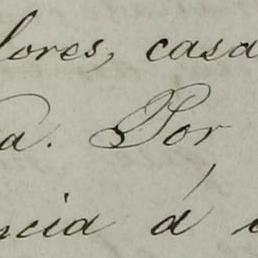 lores, casa
a. Por
ncia á